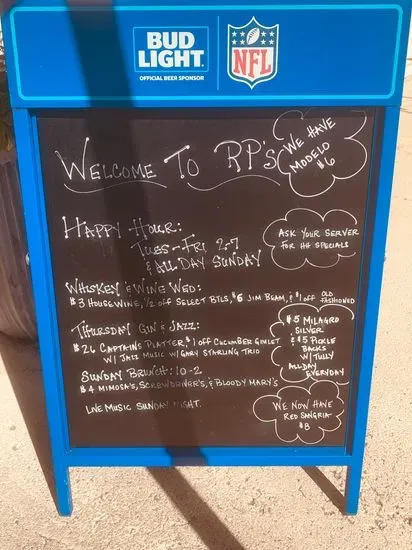 BUD
LIGHT
OFFICIAL BEER SPONSOR
NFL
WELCOME TO RP'S
WE HAVE
MODELO
$6
HAPPY HOUR:
TUES-FRI 2-7
& ALL DAY SUNDAY
ASK YOUR SERVER
FOR HH SPECIALS
WHISKEY & WINE WED:
$3 HOUSE WINE, 1/2 OFF SELECT BTLS, $6 JIM BEAM, & $1 OFF OLD FASHIONED
THURSDAY GIN & JAZZ:
$26 CAPTAINS PLATTER, $1 OFF CUCUMBER GIMLET
W/ JAZZ MUSIC W/ GARY STARLING TRIO
SUNDAY BRUNCH: 10-2
$4 MIMOSA'S, SCREWDRIVER'S, & BLOODY MARY'S
LIVE MUSIC SUNDAY NIGHT.
$5 MILAGRO
SILVER
& $5 PICKLE
BACKS
W/ TULLY
ALL DAY
EVERYDAY
WE NOW HAVE
RED SANGRIA
$8